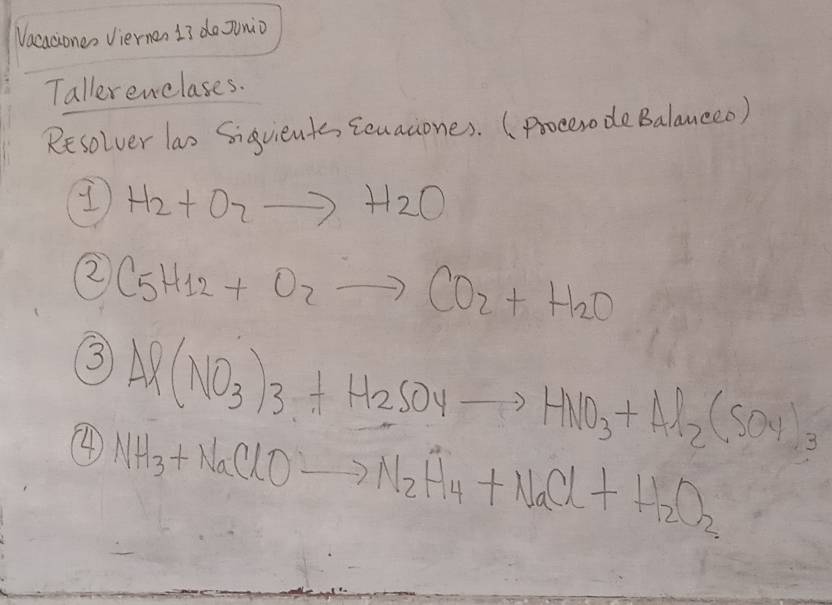 Vacaciones Viernes 13 de Junio
Taller en clases.
Resolver las Siguientes Ecuaciones. (Proceso de Balanceo)
① H2 + O2 → H2O
② C5H12 + O2 → CO2 + H2O
③ Al(NO3)3 + H2SO4 → HNO3 + Al2(SO4)3
④ NH3 + NaClO → N2H4 + NaCl + H2O2